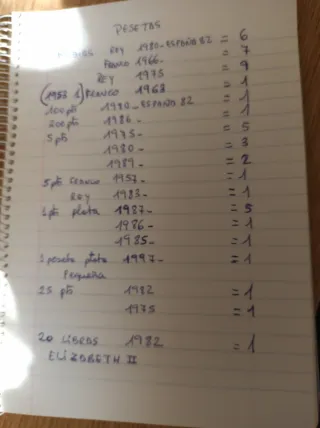 PESETAS
REY 1980-ESPAÑA 82 = 6
FRANCO 1966- = 7
REY 1975 = 9
(1953 1) FRANCO 1963 = 1
100 pts 1980-ESPAÑA 82 = 1
200 pts 1986- = 1
5 pts 1975- = 5
1980- = 3
1989- = 2
5 pts FRANCO 1957- = 1
REY 1983- = 1
1 pts plata 1987- = 5
1986- = 1
1985- = 1
1 peseta plata 1997- = 1
Pequeña
25 pts 1982 = 1
1975 = 1
20 LIBRAS 1982 = 1
ELIZABETH II